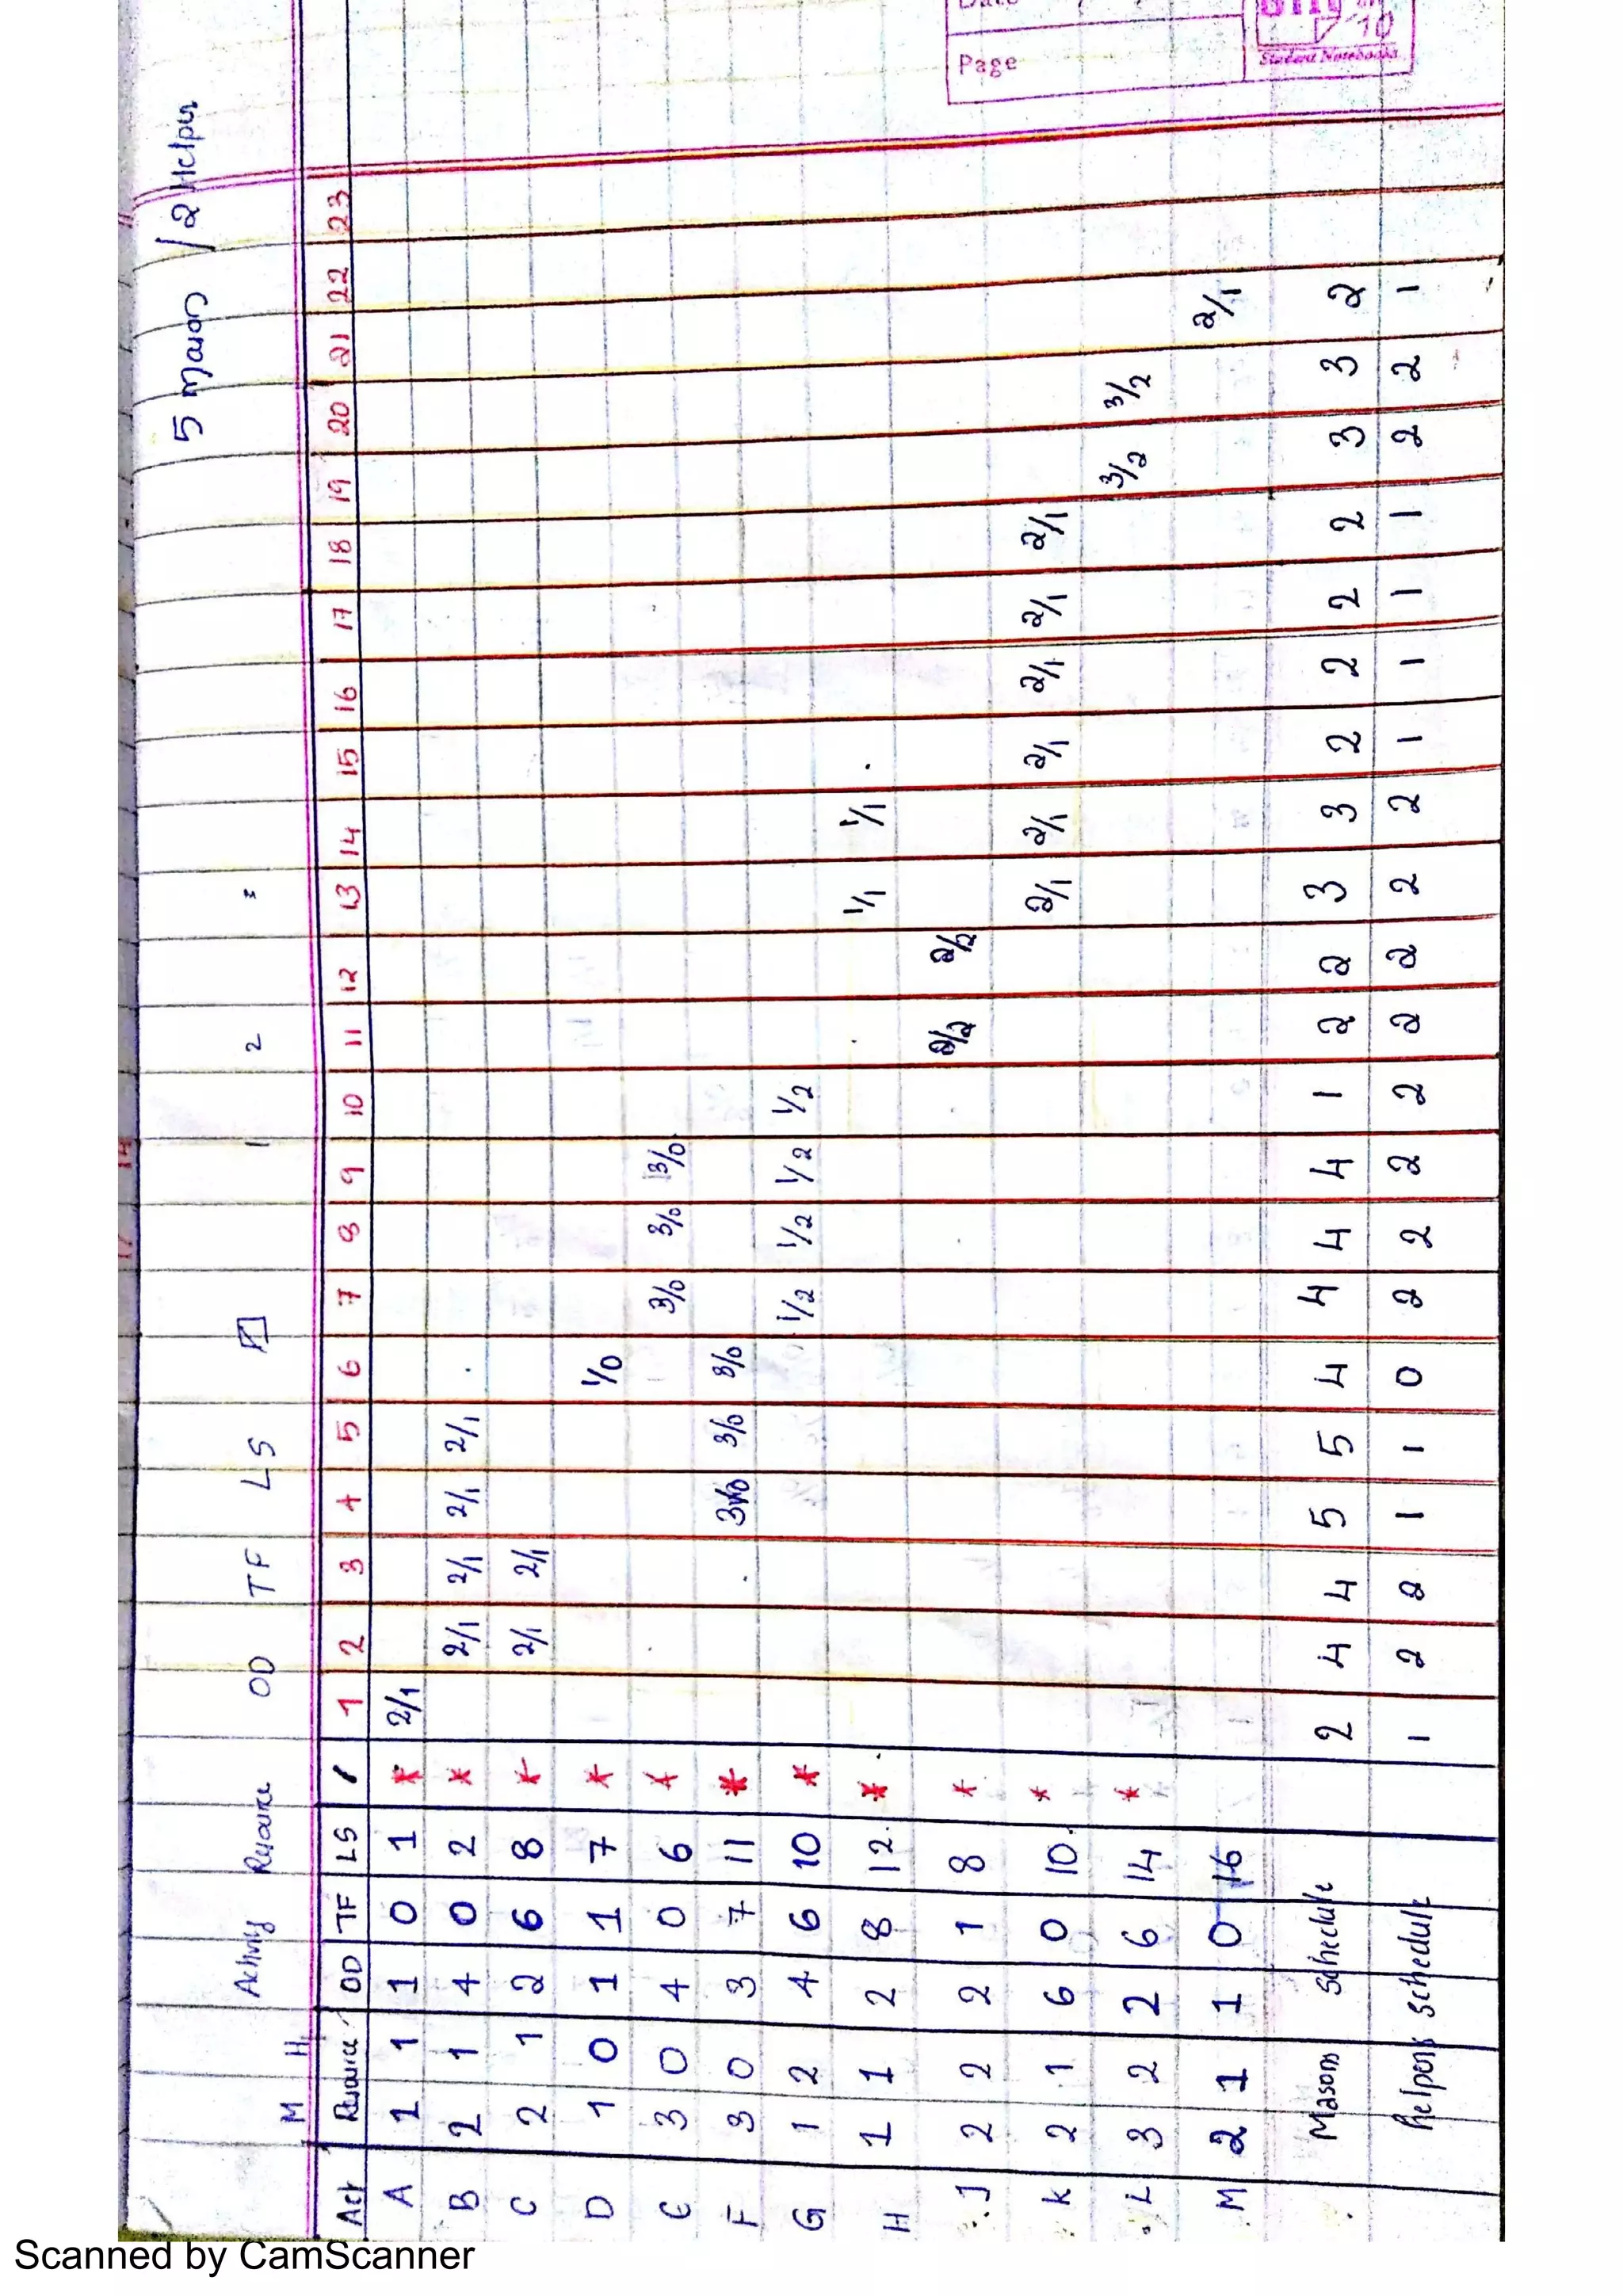 5 Mason / 2 Helper
Activity Resource OD TF LS 1 2 3
M H
Act Resource OD TF LS / 1 2 3 4 5 6 7 8 9 10 11 12 13 14 15 16 17 18 19 20 21 22 23
A 1 1 1 0 1 * 2/1
B 2 1 4 0 2 * 2/1 2/1 2/1 2/1
C 2 1 2 6 8 * 2/1 2/1
D 1 0 1 1 7 * 1/0
E 3 0 4 0 6 * 3/0 3/0 3/0
F 3 0 3 7 11 * 3/0 3/0 3/0
G 1 2 4 6 10 * 1/2 1/2 1/2 1/2
H 1 1 2 8 12 * 1/1 1/1
J 2 2 2 1 8 * 2/2 2/2
K 2 1 6 0 10 * 2/1 2/1 2/1 2/1 2/1 2/1
L 3 2 2 6 14 * 3/2 3/2
M 2 1 1 0 16 2/1
Masons Schedule 2 4 4 5 5 4 4 4 4 1 2 2 3 3 2 2 2 2 3 3 2
Helpers Schedule 1 2 2 1 1 0 2 2 2 2 2 2 2 2 1 1 1 1 2 2 1
Page
Student Notebooks
Scanned by CamScanner